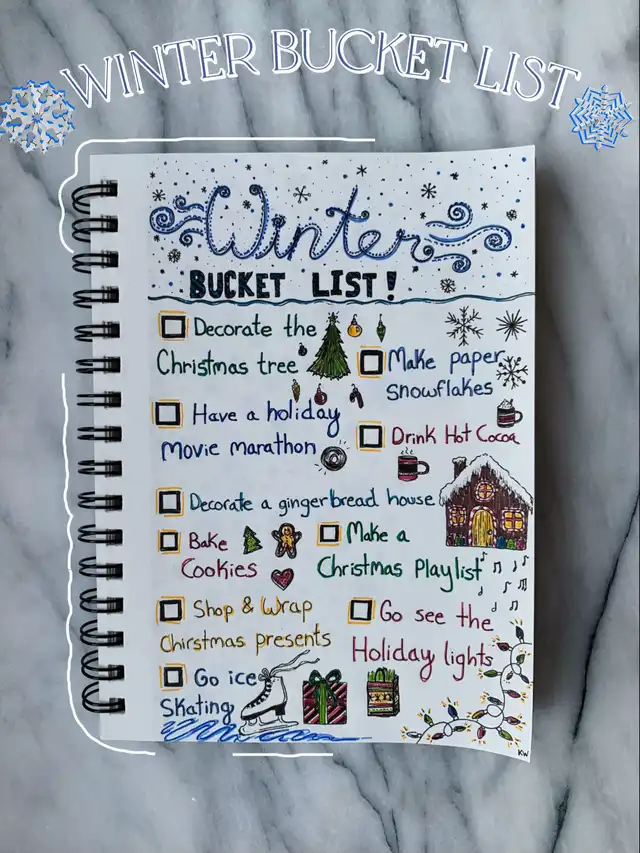 WINTER BUCKET LIST
Winter
BUCKET LIST!
Decorate the
Christmas tree
Make paper
snowflakes
Have a holiday
Movie marathon
Drink Hot Cocoa
Decorate a gingerbread house
Bake
Cookies
Make a
Christmas Playlist
Shop & Wrap
Chirstmas presents
Go see the
Holiday lights
Go ice
Skating
KW